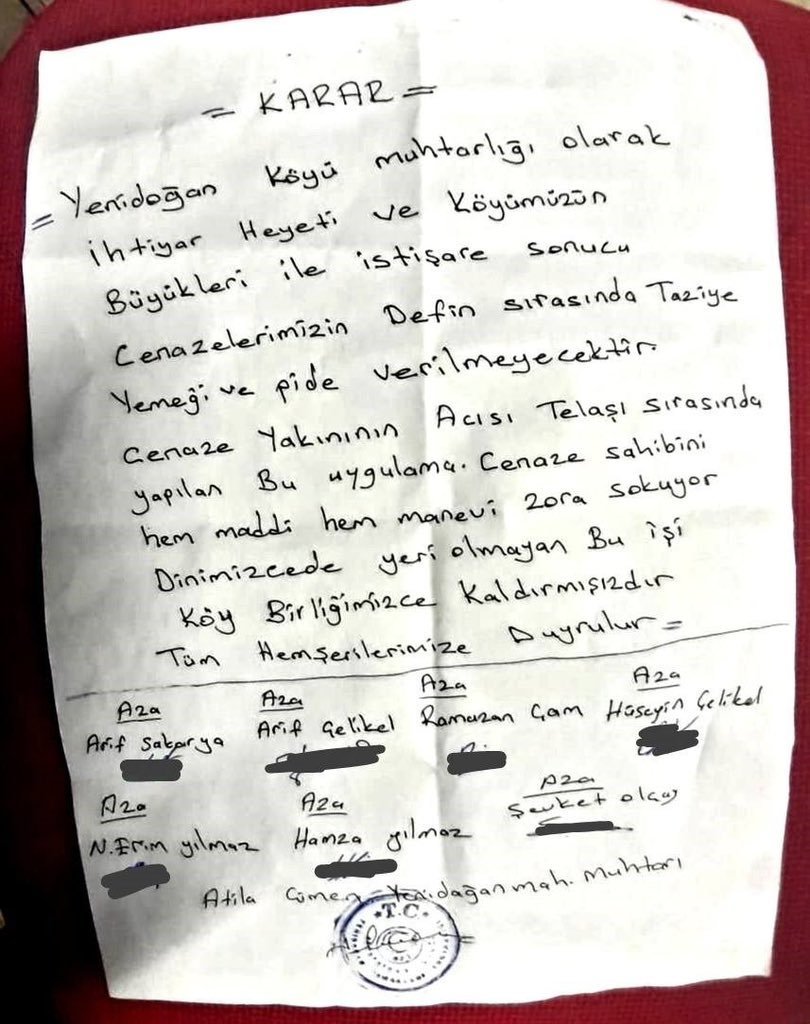 = KARAR =
= Yenidoğan Köyü muhtarlığı olarak
ihtiyar Heyeti ve Köyümüzün
Büyükleri ile istişare sonucu
Cenazelerimizin Defin sırasında Taziye
Yemeği ve pide verilmeyecektir.
Cenaze Yakınının Acısı Telaşı sırasında
yapılan Bu uygulama. Cenaze sahibini
hem maddi hem manevi zora sokuyor
Dinimizcede yeri olmayan Bu işi
Köy Birliğimizce Kaldırmışızdır
Tüm Hemşerilerimize Duyrulur =
Aza Aza Aza Aza
Arif Sakarya Arif Çelikel Ramazan Çam Hüseyin Çelikel
Aza Aza Aza
N.Erim yılmaz Hamza yılmaz Şevket olcay
Atila Yenidağan mah. muhtarı
T.C